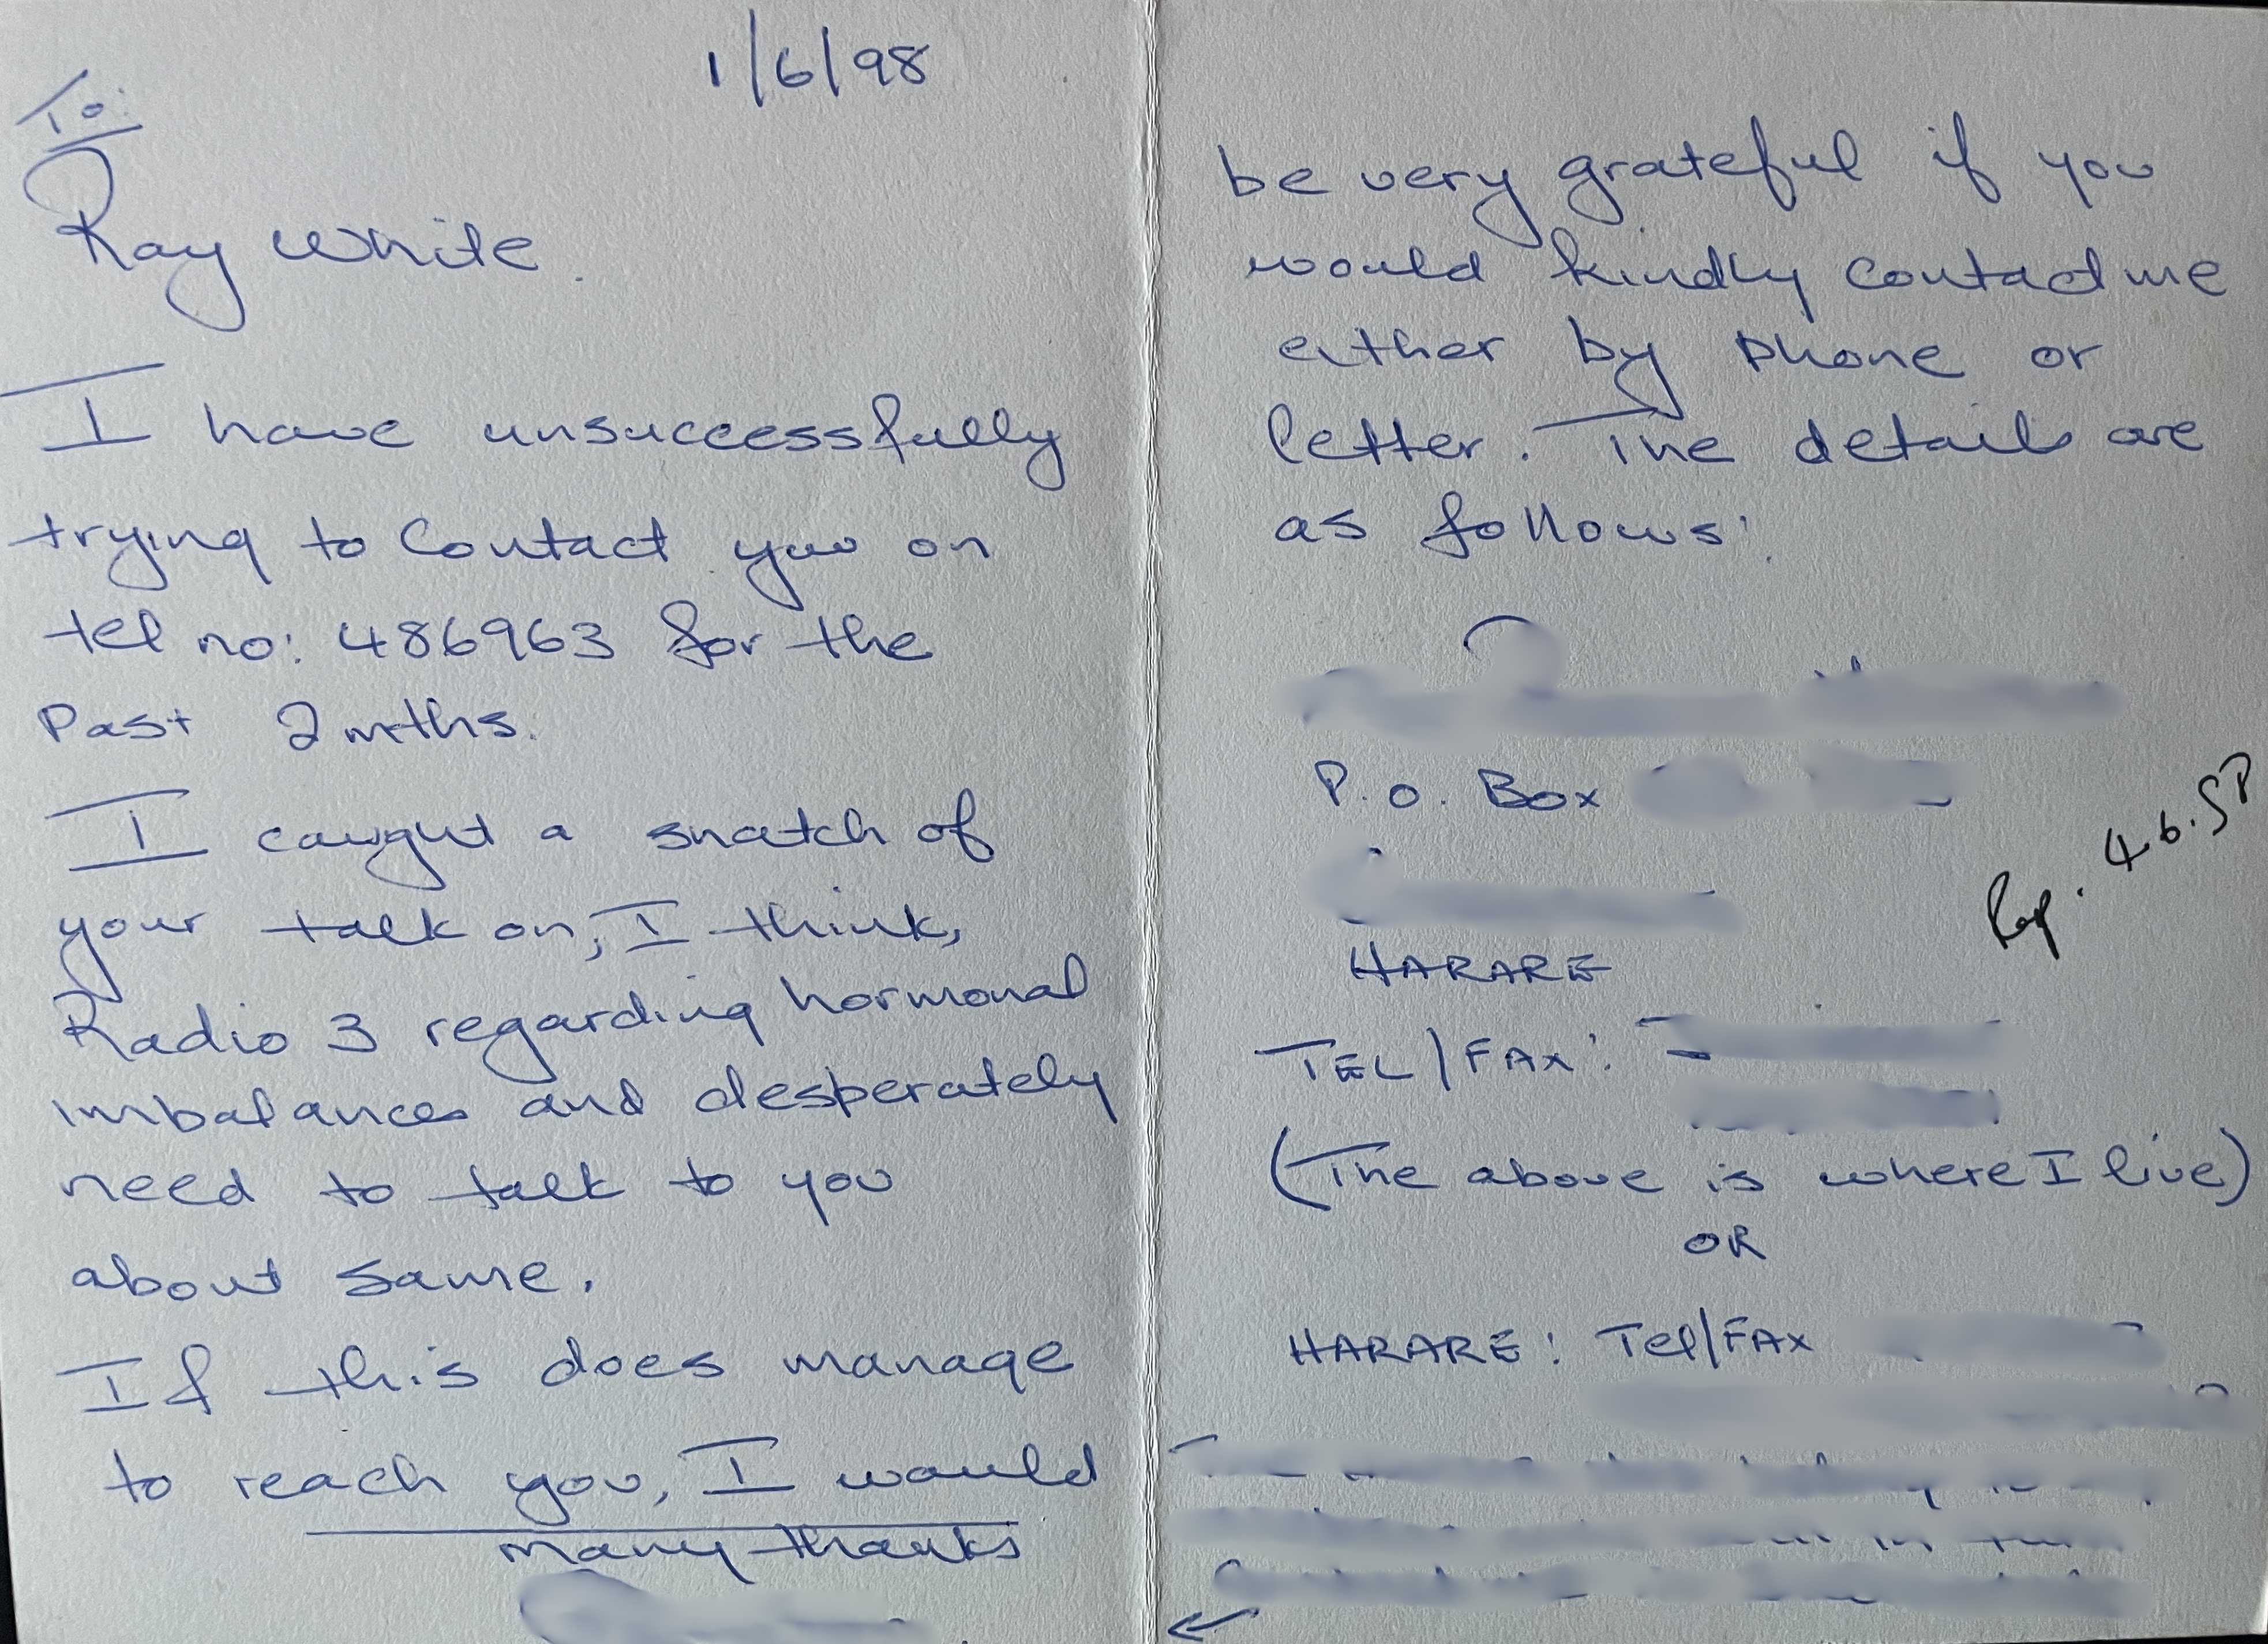 1/6/98
To:
Ray White.
I have unsuccessfully
trying to contact you on
tel no: 486963 for the
Past 2 mths.
I caught a snatch of
your talk on, I think,
Radio 3 regarding hormonal
imbalances and desperately
need to talk to you
about same.
If this does manage
to reach you, I would
many thanks
be very grateful if you
would kindly contact me
either by phone or
letter. The details are
as follows:
P.O. Box
HARARE
TEL/FAX:
(The above is where I live)
OR
HARARE: Tel/FAX
←
Rep. 4.6.